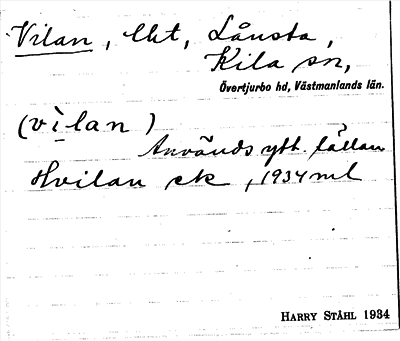 Vilan, lht, Lånsta,
Kila sn,
Övertjurbo hd, Västmanlands län.
(vìlan)
Används ytt. sällan
Hvilan ek, 1934 ml
HARRY STÅHL 1934